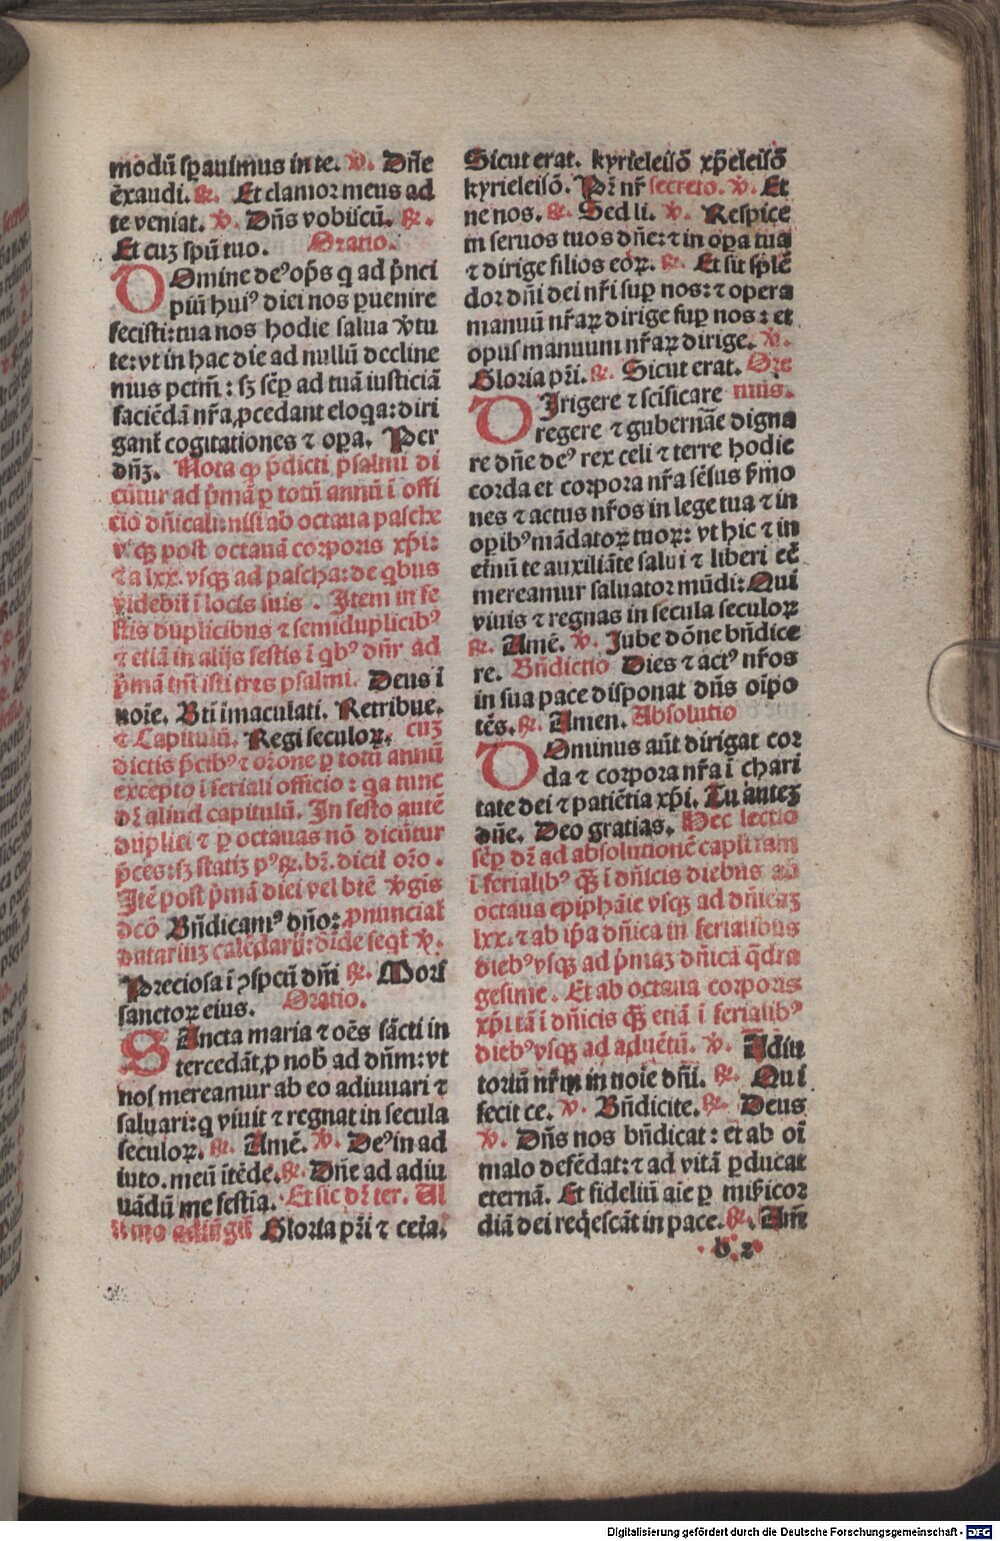 modū sꝑauimus in te. ℣. Dñe
exaudi. ℟. Et clamor meus ad
te veniat. ℣. Dñs vobiscū. ℟.
Et cuꝫ spū tuo. Oratio.
DOmine deꝰ op̄s q ad p̄nci
piū huiꝰ diei nos ꝑuenire
fecisti: tua nos hodie salua v̓tu
te: vt in hac die ad nullū decline
mus pctm̄: sꝫ sēꝑ ad tuā iusticiā
faciēdā nr̄a ꝓcedant eloqa: diri
gant̄ cogitationes ⁊ oꝑa. Per
dn̄ꝫ. Nota ꝙ p̄dicti psalmi di
cūtur ad p̄mā ꝑ totū annū ī offi
cio dn̄icali: nisi ab octaua pasche
vsqꝫ post octauā corporis xp̄i:
⁊ a lxx. vsqꝫ ad pascha: de qbus
videbit̄ ī locis suis. Item in fe
stis duplicibus ⁊ semiduplicibꝰ
⁊ etiā in alijs festis ī qbꝰ dn̄r ad
p̄mā tm̄ isti tres psalmi. Deus ī
noīe. Bti īmaculati. Retribue.
⁊ Capitulū. Regi seculoꝝ. cuꝫ
dictis p̄cibꝰ ⁊ or̄one ꝑ totū annū
excepto ī feriali officio: qa tunc
dr̄ aliud capitulū. In festo autē
duplici ⁊ ꝑ octauas nō dicūtur
p̄ces: sꝫ statiꝫ pꝰ ℟. br̄. dicit̄ or̄o.
Itē post p̄mā diei vel btē v̓gis
dcō Bn̄dicamꝰ dn̄o: ꝓnunciat̄
datariuꝫ calēdarij: dīde seqt̄ ℣.
Preciosa ī ꝯspcū dn̄i ℟. Mors
sanctoꝝ eius. Oratio.
SAncta maria ⁊ oēs sācti in
tercedāt ꝓ nob̄ ad dn̄m: vt
nos mereamur ab eo adiuuari ⁊
saluari: q viuit ⁊ regnat in secula
seculoꝝ. ℟. Amē. ℣. Deꝰ in ad
iuto. meū ītēde. ℟. Dn̄e ad adiu
uādū me festia. Et sic dr̄ ter. Ul
timo adiūgit̄ Gloria pr̄i ⁊ cetā.
Sicut erat. kyrieleisō xp̄eleisō
kyrieleisō. Pr̄ nr̄ secreto. ℣. Et
ne nos. ℟. Sed li. ℣. Respice
in seruos tuos dn̄e: ⁊ in oꝑa tua
⁊ dirige filios eoꝝ. ℟. Et sit splē
dor dn̄i dei nr̄i suꝑ nos: ⁊ opera
manuū nr̄aꝝ dirige suꝑ nos: et
opus manuum nr̄aꝝ dirige. ℣.
Gloria pr̄i. ℟. Sicut erat. Ore
DIrigere ⁊ scīficare mus.
regere ⁊ gubernāe digna
re dn̄e deꝰ rex celi ⁊ terre hodie
corda et corpora nr̄a sēsus s̓mo
nes ⁊ actus nr̄os in lege tua ⁊ in
oꝑibꝰ mādatoꝝ tuoꝝ: vt hic ⁊ in
etn̄ū te auxiliāte salui ⁊ liberi eē
mereamur saluator mūdi: Qui
viuis ⁊ regnas in secula seculoꝝ
℟. Amē. ℣. Jube dōne bn̄dice
re. Bn̄dictio Dies ⁊ actꝰ nr̄os
in sua pace disponat dn̄s oīpo
tēs. ℟. Amen. Absolutio
DOminus aūt dirigat cor
da ⁊ corpora nr̄a ī chari
tate dei ⁊ patiētia xp̄i. Tu auteꝫ
dn̄e. Deo gratias. Hec lectio
sēꝑ dr̄ ad absolutionē capituli tam
ī ferialibꝰ qꝫ̄ ī dn̄icis diebus ab
octaua epiphaīe vsqꝫ ad dn̄icaꝫ
lxx. ⁊ ab ip̄a dn̄ica in ferialibus
diebꝰ vsqꝫ ad p̄maꝫ dn̄icā q̄dra
gesime. Et ab octaua corporis
xp̄i tā ī dn̄icis qꝫ̄ etiā ī ferialibꝰ
diebꝰ vsqꝫ ad aduētū. ℣. Adiu
toriū nr̄m in noīe dn̄i. ℟. Qui
fecit ce. ℣. Bn̄dicite. ℟. Deus
℣. Dn̄s nos bn̄dicat: et ab oī
malo defēdat: ⁊ ad vitā ꝑducat
eternā. Et fideliū aīe ꝑ mīsicor
diā dei reqescāt in pace. ℟. Am̄
b 2
Digitalisierung gefördert durch die Deutsche Forschungsgemeinschaft - DFG